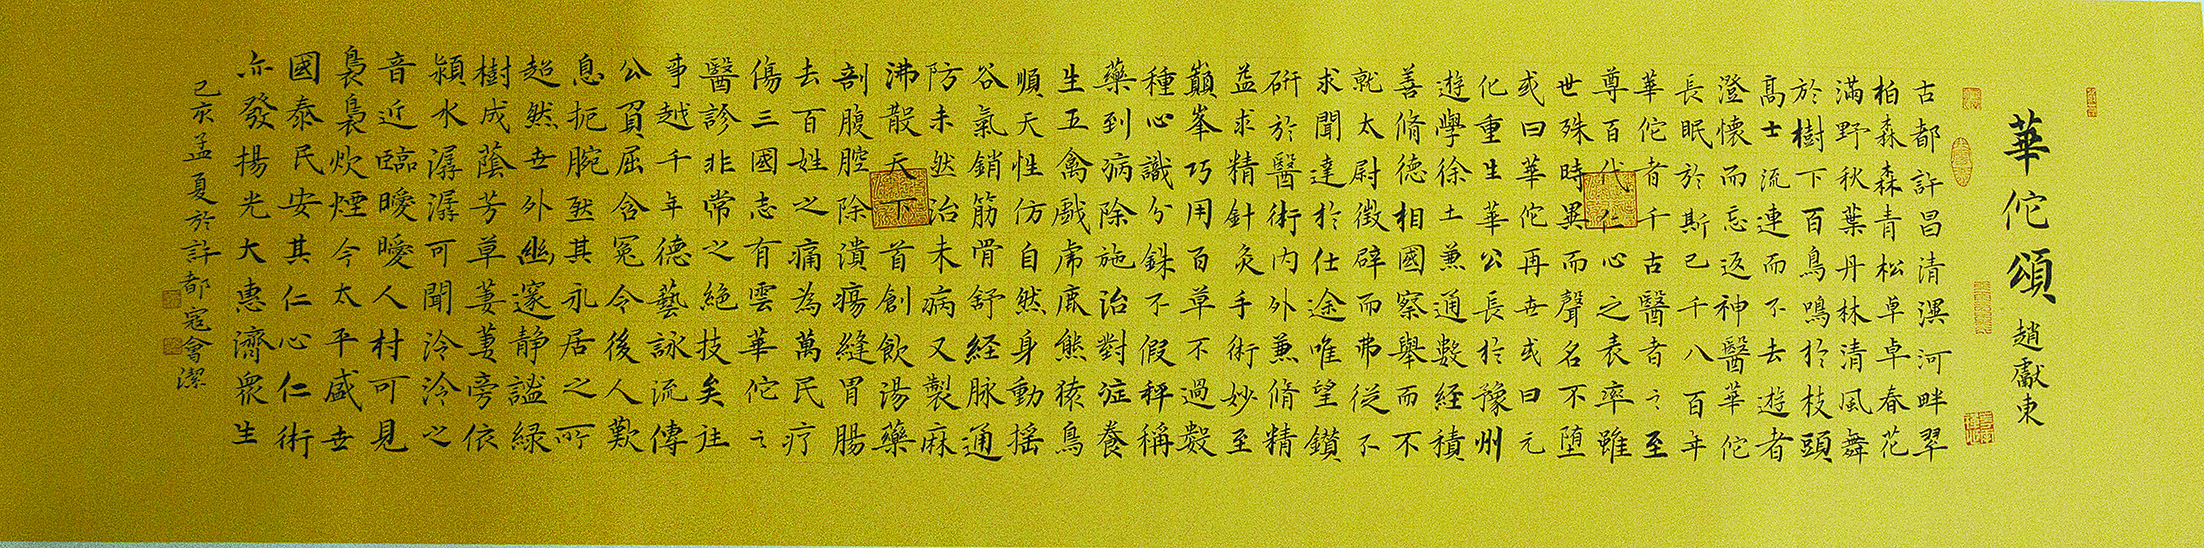 華佗頌 趙獻東
古都許昌清潩河畔翠
柏森森青松卓卓春花
滿野秋葉丹林清風舞
於樹下百鳥鳴於枝頭
高士流連而不去遊者
澄懷而忘返神醫華佗
長眠於斯已千八百年
華佗者千古醫者之至
尊百代仁心之表率雖
世殊時異而聲名不墮
或曰華佗再世或曰元
化重生華公長於豫州
遊學徐土兼通數經積
善脩德相國察舉而不
就太尉徵辟而弗從不
求聞達於仕途唯望鑽
研於醫術內外兼脩精
益求精針灸手術妙至
巔峯巧用百草不過數
種心識分銖不假秤稱
藥到病除施治對症養
生五禽戲虎鹿熊猿鳥
順天性仿自然身動搖
谷氣銷筋骨舒經脉通
防未然治未病又製麻
沸散天下首創飲湯藥
剖腹腔除潰瘍縫胃腸
去百姓之痛為萬民疗
傷三國志有雲華佗之
醫診非常之絕技矣往
事越千年德藝詠流傳
公負屈含冤令後人歎
息扼腕然其永居之所
超然世外幽邃静謐緑
樹成蔭芳草萋萋旁依
潁水潺潺可聞泠泠之
音近臨曖曖人村可見
裊裊炊煙今太平盛世
國泰民安其仁心仁術
亦發揚光大惠濟衆生
己亥孟夏於許都寇會潔